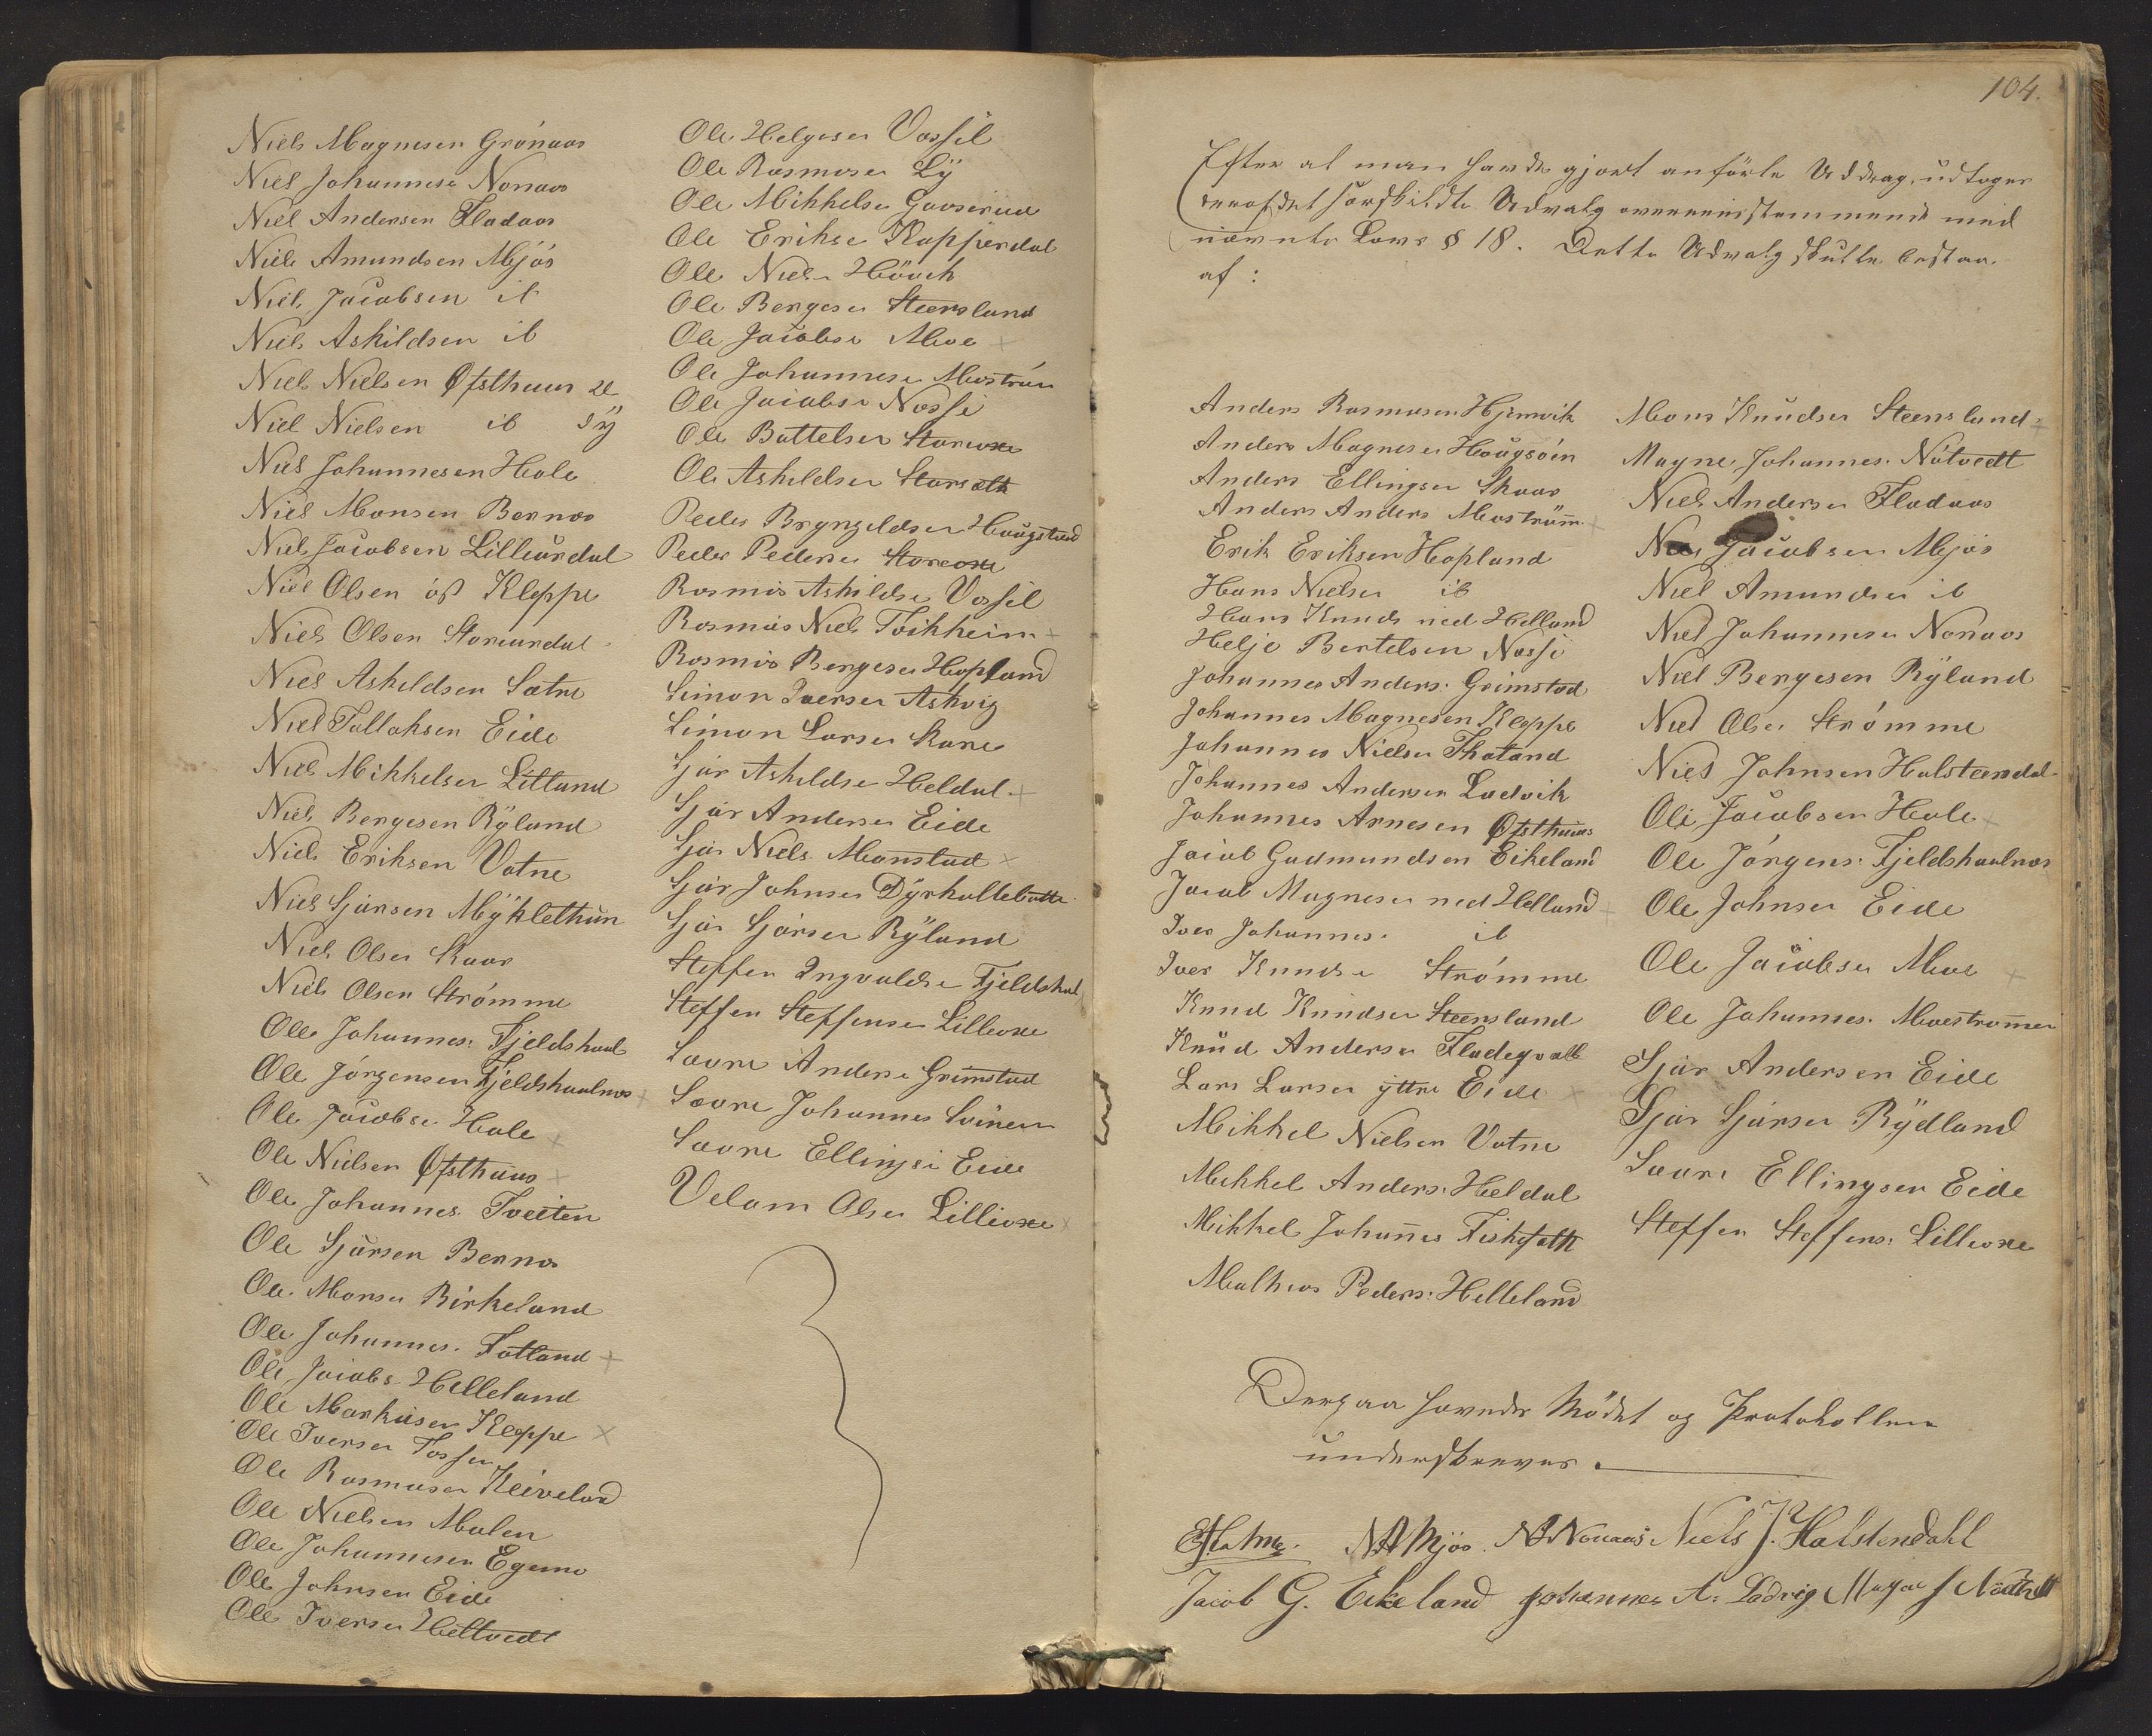 Niels Magnesen Grónaas
Niels Johannese Nonaas
Niels Andersen Fladaas
Niels Amundsen Mjós
Niels Jacobsen ib
Niels Askildsen ib
Niels Nielsen Øfsthuus æ
Niels Nielsen ib dÿ
Niels Johannesen Hole
Niels Monsen Bernæs
Niels Jacobsen Lilleurdal
Niels Olsen óv Kleppe
Niels Olsen Storeurdal
Niels Askildsen Sætre
Niels Tollaksen Eide
Niels Mikkelsen Litland
Niels Bergesen Rÿland
Niels Eriksen Vatne
Niels Sjursen Mÿklethun
Niels Olsen Skaar
Niels Olsen Strómme
Ole Johannes: Fjeldskaal
Ole Jórgensen Fjeldskaalnæs
Ole Jacobse Hole
Ole Nielsen Øfsthuus
Ole Johannes. Tveiten
Ole Sjursen Bernæs
Ole Monsen Birkeland
Ole Johannes. Fatland
Ole Jacobs Helleland
Ole Markusen Kleppe
Ole Iversen Fossen
Ole Rasmusen Kleiveland
Ole Nielsen Malen
Ole Johannesen Egenæ
Ole Johnsen Eide
Ole Iversen Heltvedt
Ole Helgesen Vassel
Ole Rasmusen Lÿ
Ole Mikkelse
Ole Erikse Kopperdal
Ole Niels Hóvik
Ole Bergese Steensland
Ole Jacobse Moe
Ole Johannese Moström
Ole Jacobse Nosse
Ole Battelsen Storeoxe
Ole Askeldsen Storsæth
Peder Brÿngeldsen Haugstad
Peder Pedersen Storeoxe
Rasmus Askildse Vassel
Rasmus Niels Tvihheim
Rasmus Bergesen Hopland
Simon Iversen Askvig
Simon Larsen Skare
Sjur Askeldse Heldal
Sjur Anderse Eide
Sjur Niels Monstad
Sjur Johnsen Dÿrkollebotte
Sjur Sjursen Rÿland
Steffen Ingvalds Fjeldskal
Steffen Steffensen Lilleoxe
Saare Anderse Grimstad
Saare Johannes Svinen
Saare Ellingse Eide
Velom Olsen Lilleoxe
104.
Efter at man havde gjort anførte Uddrag, udtoges
deraf det særskildte Udvalg overeensstemmende med
nævnte Lovs § 18. Dette Udvalg skulle bestaa
af:
Anders Rasmusen Hjemvik
Anders Magnesen Haugsóen
Anders Ellingsen Skaar
Anders Anders Moström
Erik Eriksen Hopland
Hans Nielsen ib
Hans Knuds ned Helland
Helje Bertelsen Nosse
Johannes Anders: Grimstad
Johannes Magnesen Kleppe
Johannes Nielsen Thotand
Johannes Andersen Ladvik
Johannes Arnesen Øfsthuus
Jacob Gudmundsen Eikeland
Jacob Magnesen ned Helland
Iver Johannes. ib
Iver Knudse Strómme
Knud Knudsen Steensland
Knud Andersen Fladegvalb
Lars Larsen ÿttre Eide
Mikkel Nielsen Vatne
Mikkel Anders: Heldal
Mikkel Johan̄es Fiskesæth
Mathias Peders: Helleland
Mons Knudsen Steensland
Magne Johannes. Nótvedt
Niels Andersen Fladaas
Niels Jacobsen Mjós
Niels Amundsen ib
Niels Johannesen Nonaas
Niels Bergesen Rÿland
Niels Olsen Strómme
Niels Johnsen Halsteensdal
Ole Jacobsen Hole
Ole Jórgens: Fjeldskaalnæs
Ole Johnsen Eide
Ole Jacobsen Moe
Ole Johannes. Moestrom̄en
Sjur Andersen Eide
Sjur Sjursen Rÿdland
Saare Ellingsen Eide
Steffen Steffens: Lilleoxe
Derpaa hævedes Mødet og Protokollen
underskreves.
N A Mjös. N J Nonaas Niels J. Halstendahl
Jacob G. Eikeland Johannes A: Ladvig Magne J Nödtvedt